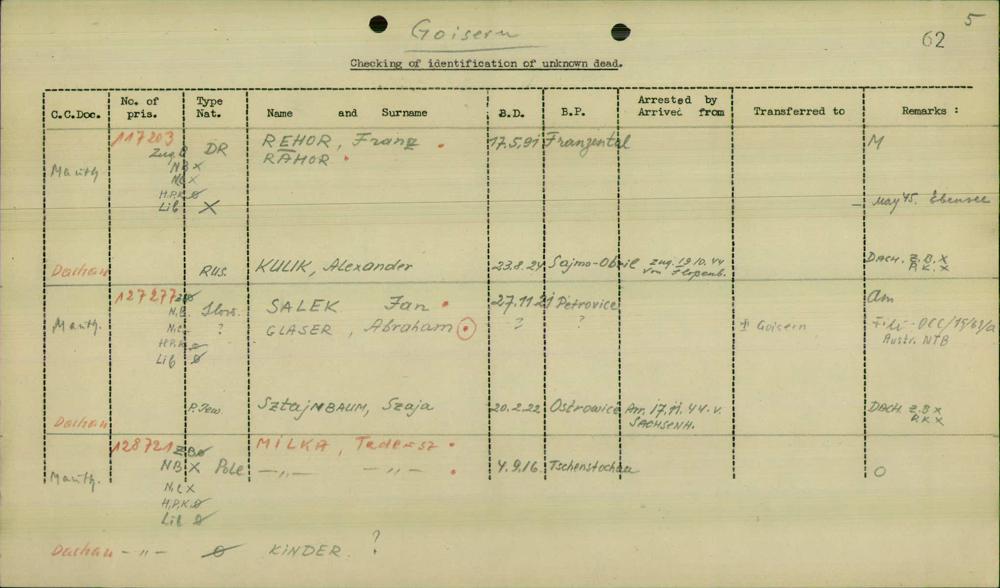 5
Goisern
62
Checking of identification of unknown dead.
C.C.Doc. No. of pris. Type Nat. Name and Surname B.D. B.P. Arrested by Arrived from Transferred to Remarks :
117203 REHOR, Franz 17.5.91 Franzental M
Zug.B DR RÄHOR
Mauth. NB X
NL X
H.P.K. Ø
Lib X – May 45. Ebensee
Dachau RUS. KULIK, Alexander 23.8.24 Sajmo-Obsil zug. 19.10.44 DACH. Z.B. X
von Flossenb. P.K. X
127277 ZBØ SALEK Jan 27.11.21 Petrovice am
N.B. Slov.
Mauth. N.L. ? GLASER, Abraham ? ? ‡ Goisern
H.P.K. Ø Austr. NTB
Lib Ø
P. Jew. SztajNBAUM, Szaja 20.2.22 Ostrowice Arr. 17.11.44. v. DACH. Z.B X
Dachau SACHSENH. P.K X
128721 ZBØ MILKA, Tadeusz
Mauth. NB X Pole – „ – – „ – 4.9.16. Tschenstochau O
N.L X
H.P.K. Ø
Lib Ø
Dachau – „ – Ø KINDER. ?